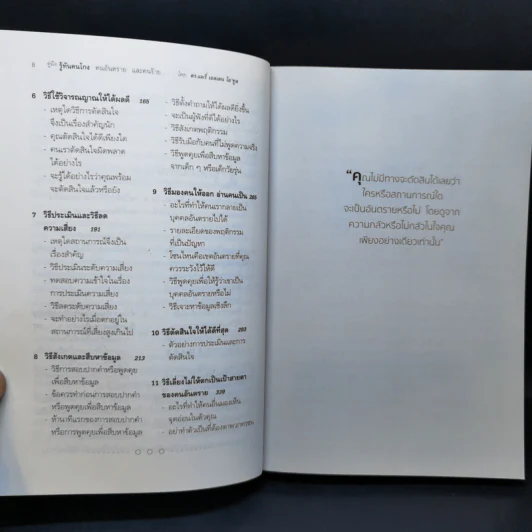 8 คู่มือ รู้ทันคนโกง คนอันตราย และคนร้าย... โดย ดร.แมรี่ เอลเลน โอ'ทูล
6 วิธีใช้วิจารณญาณให้ได้ผลดี 165
- เหตุใดวิธีการตัดสินใจ
จึงเป็นเรื่องสำคัญนัก
- คุณตัดสินใจได้ดีเพียงใด
- คนเราตัดสินใจผิดพลาด
ได้อย่างไร
- จะรู้ได้อย่างไรว่าคุณพร้อม
จะตัดสินใจแล้วหรือยัง
7 วิธีประเมินและวิธีลด
ความเสี่ยง 191
- เหตุใดสถานการณ์จึงเป็น
เรื่องสำคัญ
- วิธีประเมินระดับความเสี่ยง
- ทดสอบความเข้าใจในเรื่อง
การประเมินความเสี่ยง
- วิธีลดระดับความเสี่ยง
- จะทำอย่างไรเมื่อตกอยู่ใน
สถานการณ์ที่เสี่ยงสูงเกินไป
8 วิธีสังเกตและสืบหาข้อมูล 213
- วิธีการสอบปากคำหรือพูดคุย
เพื่อสืบหาข้อมูล
- ข้อควรทำก่อนการสอบปากคำ
หรือพูดคุยเพื่อสืบหาข้อมูล
- ห้านาทีแรกของการสอบปากคำ
หรือการพูดคุยเพื่อสืบหาข้อมูล
- วิธีตั้งคำถามให้ได้ผลดียิ่งขึ้น
- จะเป็นผู้ฟังที่ดีได้อย่างไร
- วิธีสังเกตพฤติกรรม
- วิธีรับมือกับคนที่ไม่พูดความจริง
- วิธีพูดคุยเพื่อสืบหาข้อมูล
จากเด็ก ๆ หรือเด็กวัยรุ่น
9 วิธีมองคนให้ออก อ่านคนเป็น 265
- อะไรที่ทำให้คนเรากลายเป็น
บุคคลอันตรายไปได้
- รายละเอียดของพฤติกรรม
ที่เป็นปัญหา
- โซนไหนคือเขตอันตรายที่คุณ
ควรระวังไว้ให้ดี
- วิธีพูดคุยเพื่อให้รู้ว่าเขาเป็น
บุคคลอันตรายหรือไม่
- วิธีเจาะหาข้อมูลเชิงลึก
10 วิธีตัดสินใจให้ได้ดีที่สุด 293
- ตัวอย่างการประเมินและการ
ตัดสินใจ
11 วิธีเลี่ยงไม่ให้ตกเป็นเป้าสายตา
ของคนอันตราย 339
- อะไรที่ทำให้คนอื่นมองเห็น
จุดอ่อนในตัวคุณ
- อย่าทำตัวเป็นที่ต้องตาพวกอาชญากร
"คุณไม่มีทางจะตัดสินได้เลยว่า
ใครหรือสถานการณ์ใด
จะเป็นอันตรายหรือไม่ โดยดูจาก
ความกลัวหรือไม่กลัวในใจคุณ
เพียงอย่างเดียวเท่านั้น"